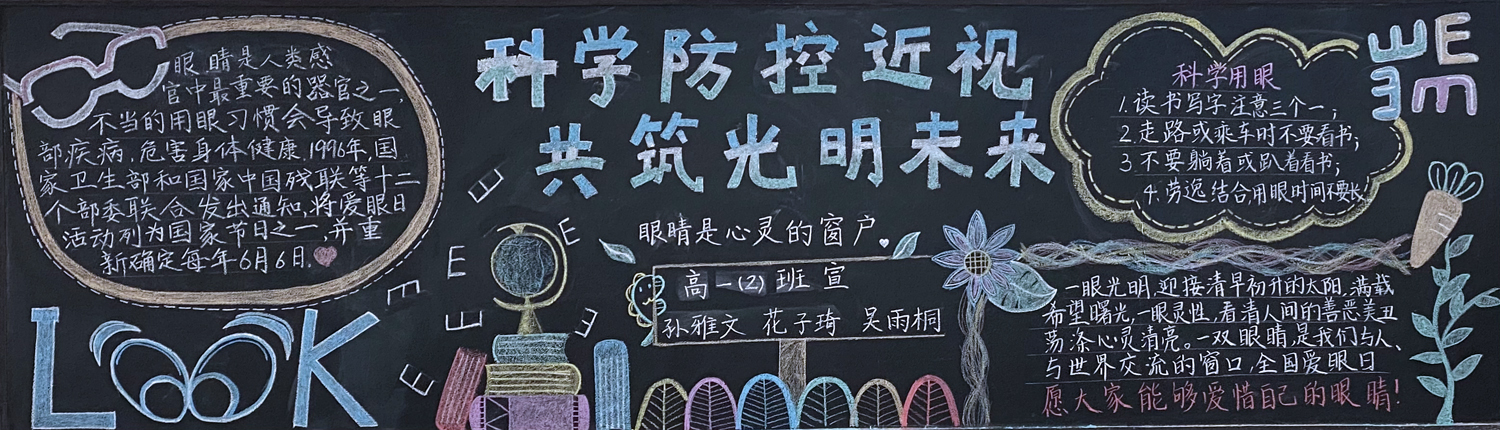 眼睛是人类感
官中最重要的器官之一,
不当的用眼习惯会导致眼
部疾病,危害身体健康.1996年,国
家卫生部和国家中国残联等十二
个部委联合发出通知,将爱眼日
活动列为国家节日之一,并重
新确定每年6月6日.
LOOK
科学防控近视
共筑光明未来
E
E
E
E
E
E
E
眼睛是心灵的窗户
高一(2)班 宣
孙雅文 花子琦 吴雨桐
科学用眼
1.读书写字注意三个一;
2.走路或乘车时不要看书;
3.不要躺着或趴着看书;
4.劳逸结合,用眼时间不要长
E E
E E
一眼光明,迎接清早初升的太阳,满载
希望曙光,一眼灵性,看清人间的善恶美丑
荡涤心灵清亮。一双眼睛是我们与人、
与世界交流的窗口,全国爱眼日
愿大家能够爱惜自己的眼睛!